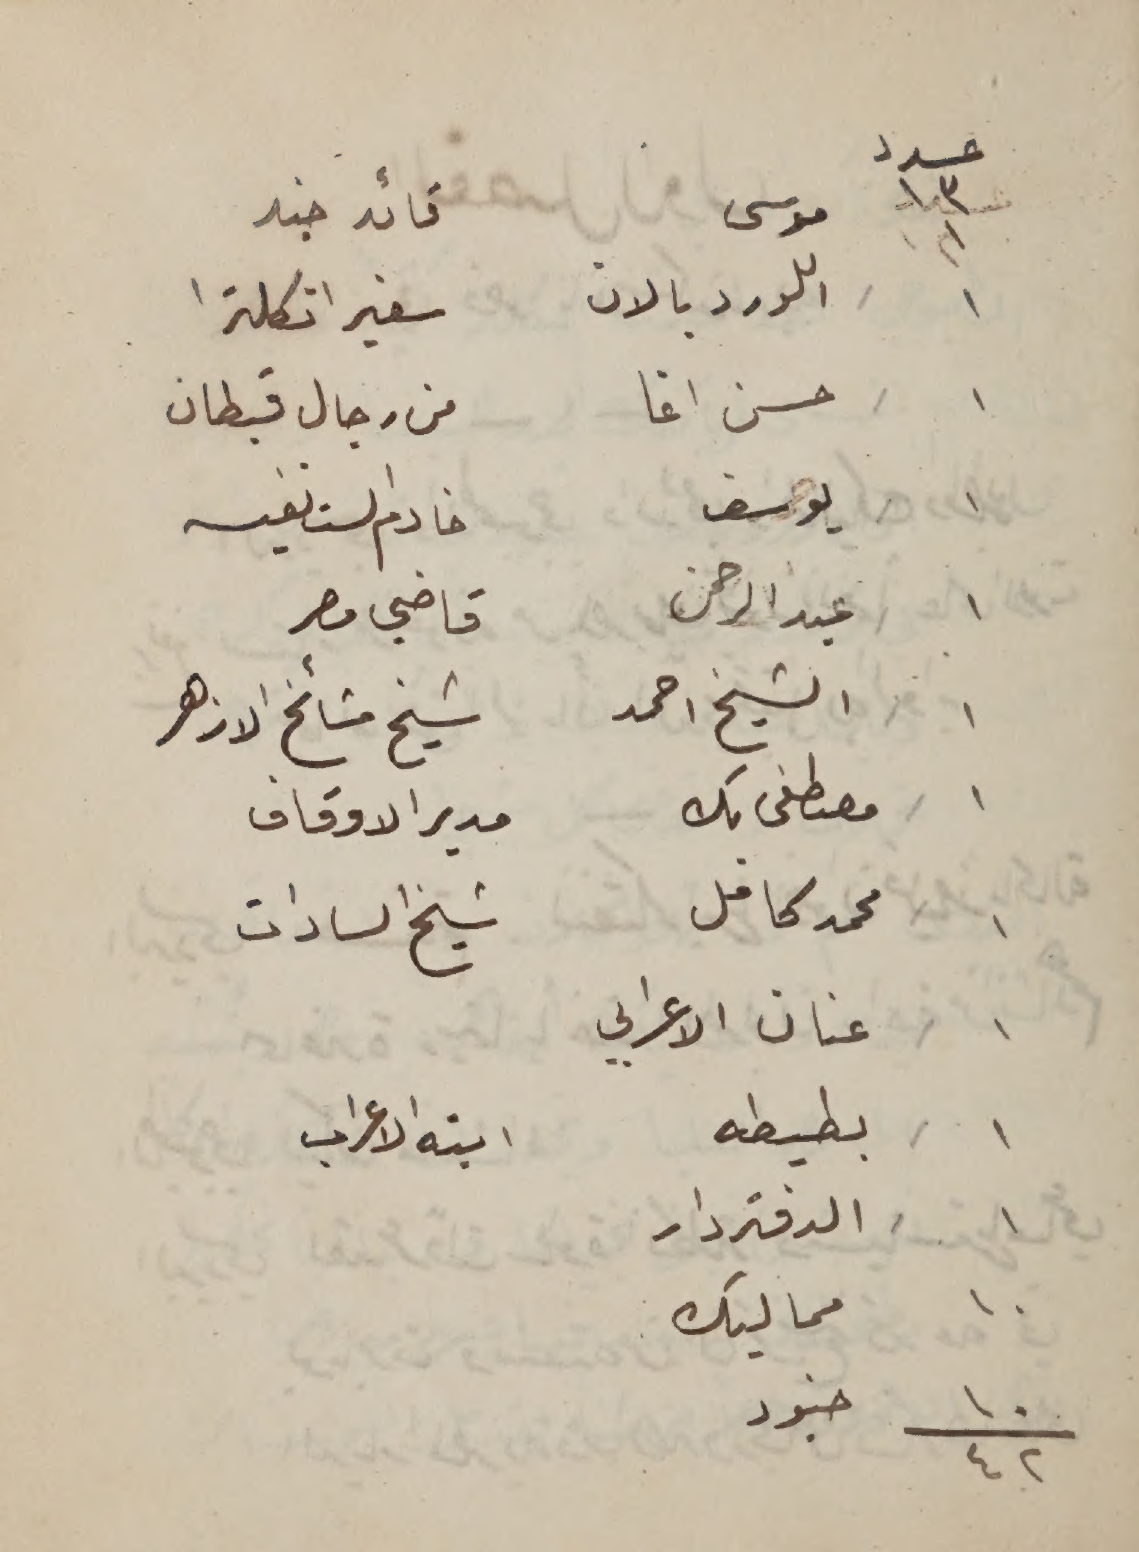 عدد
١٣
١ موسى قائد جند
١ اللورد بالان سفير انكلترا
١ حسن اغا من رجال قبطان
١ يوسف خادم الست نفيسه
١ عبد الرحمن قاضي مصر
١ الشيخ احمد شيخ مشائخ الازهر
١ مصطفى بك مدير الاوقاف
١ محمد كامل شيخ السادات
١ عنان الاعرابي
١ بطيطه ابنه الاعراب
١ الدفتردار
١٠ مماليك
١٠ جنود
٤٢